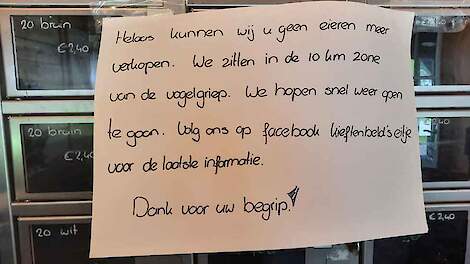 20 bruin
€2,40
Helaas kunnen wij u geen eieren meer
verkopen. We zitten in de 10 km zone
van de vogelgriep. We hopen snel weer open
te gaan. Volg ons op facebook Kieftenbeld's eitje
voor de laatste informatie.
Dank voor uw begrip.
20 bruin
€2,40
20 wit
€2,40